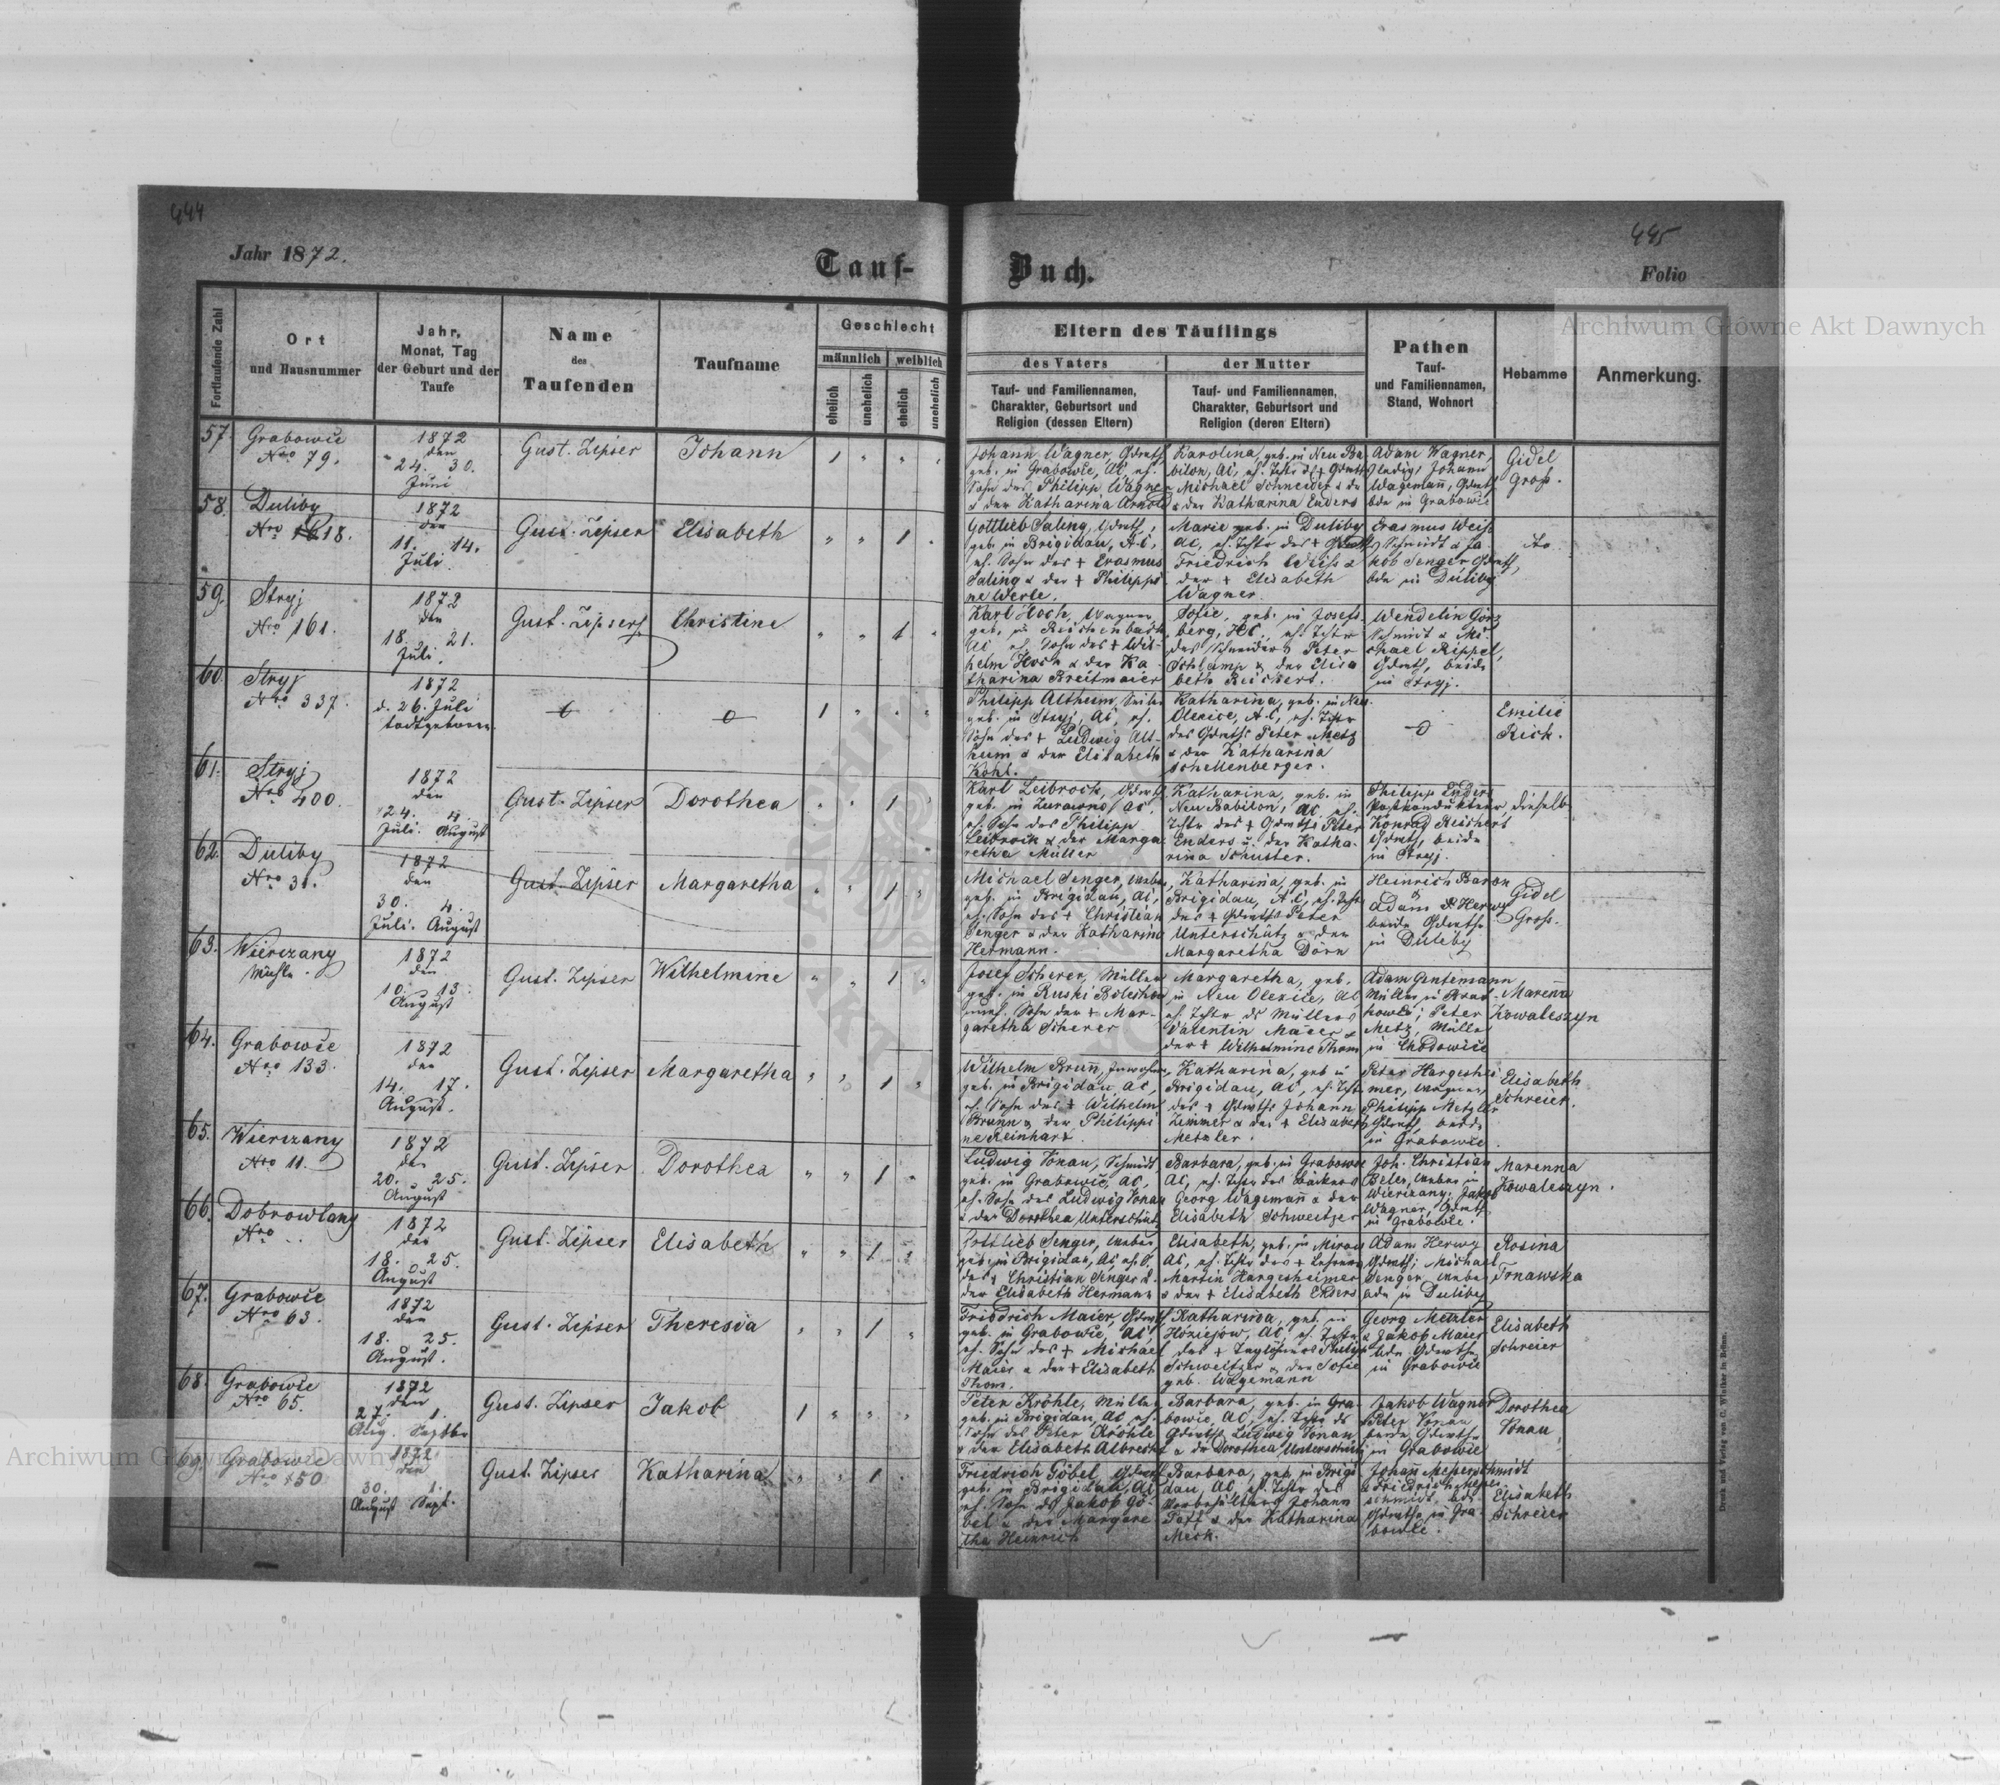 444
Jahr 1872.
Tauf-
Buch.
445
Folio
Archiwum Główne Akt Dawnych
Fortlaufende Zahl
Ort
und Hausnummer
Jahr,
Monat, Tag
der Geburt und der
Taufe
Name
des
Taufenden
Taufname
Geschlecht
männlich
weiblich
ehelich
unehelich
ehelich
unehelich
Eltern des Täuflings
des Vaters
Tauf- und Familiennamen,
Charakter, Geburtsort und
Religion (dessen Eltern)
der Mutter
Tauf- und Familiennamen,
Charakter, Geburtsort und
Religion (deren Eltern)
Pathen
Tauf-
und Familiennamen,
Stand, Wohnort
Hebamme
Anmerkung.
57.
Grabowie
Nro 79.
1872
den
24. 30.
Juni
Gust. Zipser
Johann
1
Johann Wagner,
geb. in Grabowie, AC, eh.
Sohn des Philipp Wagner
& der Katharina Arnold
Karolina, geb. in Neu Ba
bilon, AC, eh.
Michael Schneider & der
Katharina Enders
Adam Wagner,
ledig, Johann
Wagemañ,
in Grabowie
Gidel
Gross.
58.
Duliby
Nro 18.
1872
den
11. 14.
Juli.
Gust. Zipser
Elisabeth
1
Gottlieb Saling,
geb. in Brigidau, A.C,
eh. Sohn des + Erasmus
Saling & der + Philippi
ne Werle.
Marie geb. in Duliby
AC, eh.
Friedrich Weiss &
der + Elisabeth
Wagner.
Erasmus Weiss
Schmidt & Ja
kob Senger
in Duliby
59.
Stryj
Nro 161.
1872
den
18. 21.
Juli.
Gust. Zipser
Christine
1
Karl Hoch, Wagner,
geb. in Reichenbach
AC, eh. Sohn des + Wil-
helm Hoch & der Ka-
tharina Breitmaier
Sofie, geb. in Josefs-
berg, HC, eh.
des Schneiders Peter
Schlamp & der Elisa
beth Reichert.
Wendelin Görz
Schmidt & Mi-
chael Rippel,
beide
in Stryj.
60.
Stryj
Nro 337.
1872
d. 26. Juli
todtgeboren.
1
Philipp Altheim,
geb. in Stryj, AC, eh.
Sohn des + Ludwig Alt-
heim & der Elisabeth
Kohl.
Katharina, geb. in Neu
Olexice, A.C, eh.
des Peter Metz
& der Katharina
Schellenberger.
Emilie
Rech.
61.
Stryj
Nro 400.
1872
den
24. 4.
Juli. August
Gust. Zipser
Dorothea
1
Karl Leibrock,
geb. in Zurawno, AC,
eh. Sohn des Philipp
Leibrock & der Marga
retha Müller
Katharina, geb. in
Neu Babilon, AC, eh.
des + Peter
Enders u. der Katha-
rina Schuster.
Philipp Enders
Postkondukteur,
Konrad Reichert
beide
in Stryj.
dieselb.
62.
Duliby
Nro 31.
1872
den
30. 4.
Juli. August
Gust. Zipser
Margaretha
1
Michael Senger, Weber,
geb. in Brigidau, AC,
eh. Sohn des + Christian
Senger & der Katharina
Hermann.
Katharina, geb. in
Brigidau, A.C, eh.
des + Peter
Unterschütz & der
Margaretha Dörn
Heinrich Baron
&
Adam Herwy
beide
in Duliby
Gidel
Gross.
63.
Wierczany
Mühle.
1872
den
10. 13.
August
Gust. Zipser
Wilhelmine
1
Josef Scherer, Müller
geb. in Ruski Bolechow
uneh. Sohn der + Mar-
garetha Scherer
Margaretha, geb.
in Neu Olexice, AC
eh. des Müllers
Valentin Maier &
der + Wilhelmine Thom
Adam Gntemann
Müller in
Peter
Metz, Müller
in Chodowice
Marenna
Kowaleszyn
64.
Grabowie
Nro 133.
1872
den
14. 17.
August.
Gust. Zipser
Margaretha
1
Wilhelm Bruñ,
geb. in Brigidau AC,
eh. Sohn des + Wilhelm
Brunn & der Philippi
ne Reinhart.
Katharina, geb. in
Brigidau, AC, eh.
des + Johann
Zimmer & der + Elisabeth
Metzler.
Peter Hargeshei
mer, Wagner,
Philipp Metzler
in Grabowie
Elisabeth
Schreier.
65.
Wierczany
Nro 11.
1872
den
20. 25.
August
Gust. Zipser
Dorothea
1
Ludwig Vonau, Schmidt
geb. in Grabowie, AC,
eh. Sohn des Ludwig Vonau
& der Dorothea Unterschütz
Barbara, geb. in Grabowie
AC, eh. des Bäckers
Georg Wagemañ & der
Elisabeth Schweitzer
Joh. Christian
Beler, Weber in
Wierczany; Jakob
Wagner,
in Grabowie.
Marenna
Kowaleszyn.
66.
Dobrowlany
Nro ..
1872
den
18. 25.
August
Gust. Zipser
Elisabeth
1
Gottlieb Senger, Weber
geb. in Brigidau, AC, eh. S.
des Christian Senger &
der Elisabeth Hermann
Elisabeth, geb. in
AC, eh. des + Lehrers
Martin Hargesheimer
& der + Elisabeth Enders
Adam Herwy
Michael
Senger, Weber
in Duliby
Rosina
Trnawska
67.
Grabowie
Nro 63.
1872
den
18. 25.
August.
Gust. Zipser
Theresia
1
Friedrich Maier,
geb. in Grabowie, AC,
eh. Sohn des + Michael
Maier & der + Elisabeth
Thom.
Katharina, geb. in
AC, eh.
des + Philipp
Schweitzer & der Sofie
geb. Wagemann
Georg Metzler
& Jakob Maier
in Grabowie
Elisabeth
Schreier
68.
Grabowie
Nro 65.
1872
den
27. 1.
Aug. Septber
Gust. Zipser
Jakob
1
Peter Kröhle, Müller
geb. in Brigidau, AC, eh.
Sohn des Peter Kröhle
& der Elisabeth Albrecht
Barbara, geb. in Gra-
bowie, AC, eh.
Ludwig Vonau
& der Dorothea Unterschütz
Jakob Wagner
Peter Vonau
beide
in Grabowie
Dorothea
Vonau,
69.
Grabowie
Nro 150
1872
den
30. 1.
August Sept.
Gust. Zipser
Katharina
1
Friedrich Göbel,
geb. in Brigidau, AC,
eh. Sohn des Jakob Gö-
bel & der Margare
tha Heinrich
Barbara, geb. in Brigi
dau, AC, eh. des
Johann
Paff & der Katharina
Meck.
Johañ Messerschmidt
& Friedrich Messer
schmidt,
in Gra-
bowie.
Elisabeth
Schreier
Archiwum Główne Akt Dawnych